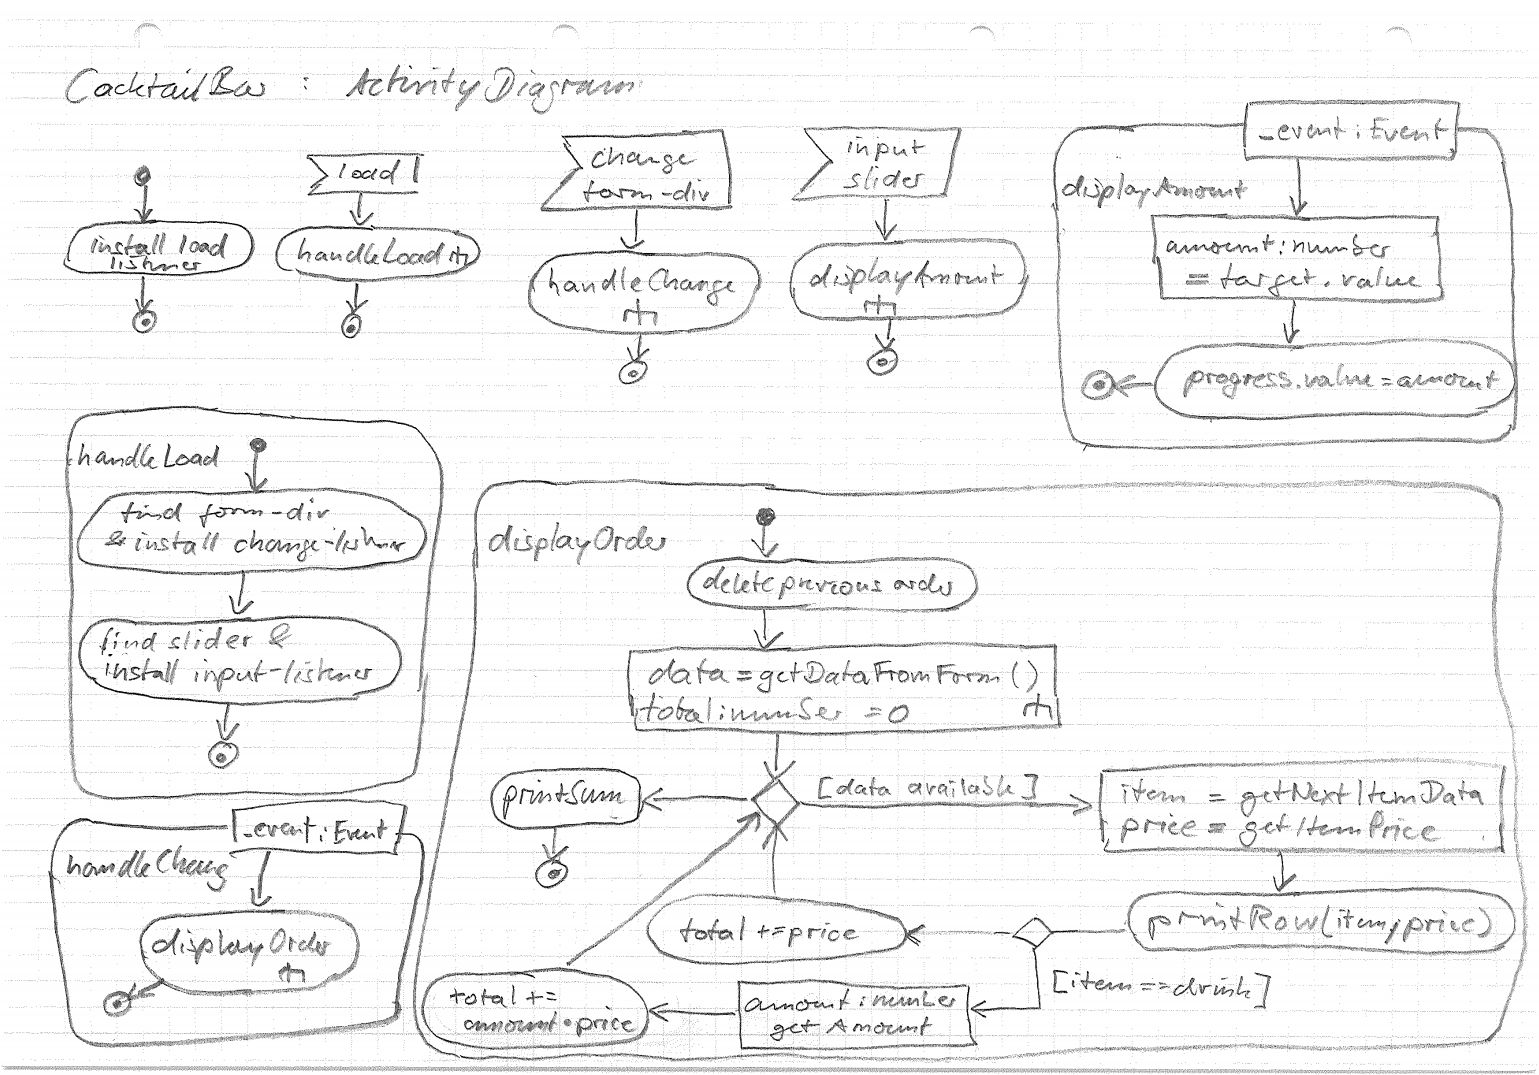 CocktailBar : ActivityDiagram
install load
listener
load
handleLoad
change
form-div
handleChange
input
slider
displayAmount
_event : Event
displayAmount
amount : number
= target.value
progress.value = amount
handleLoad
find form-div
& install change-listener
find slider &
install input-listener
_event : Event
handleChang
displayOrder
displayOrder
delete previous order
data = getDataFromForm()
total : number = 0
printSum
[data available]
item = getNextItemData
price = getItemPrice
printRow(item, price)
total += price
[item == drink]
amount : number
getAmount
total +=
amount * price